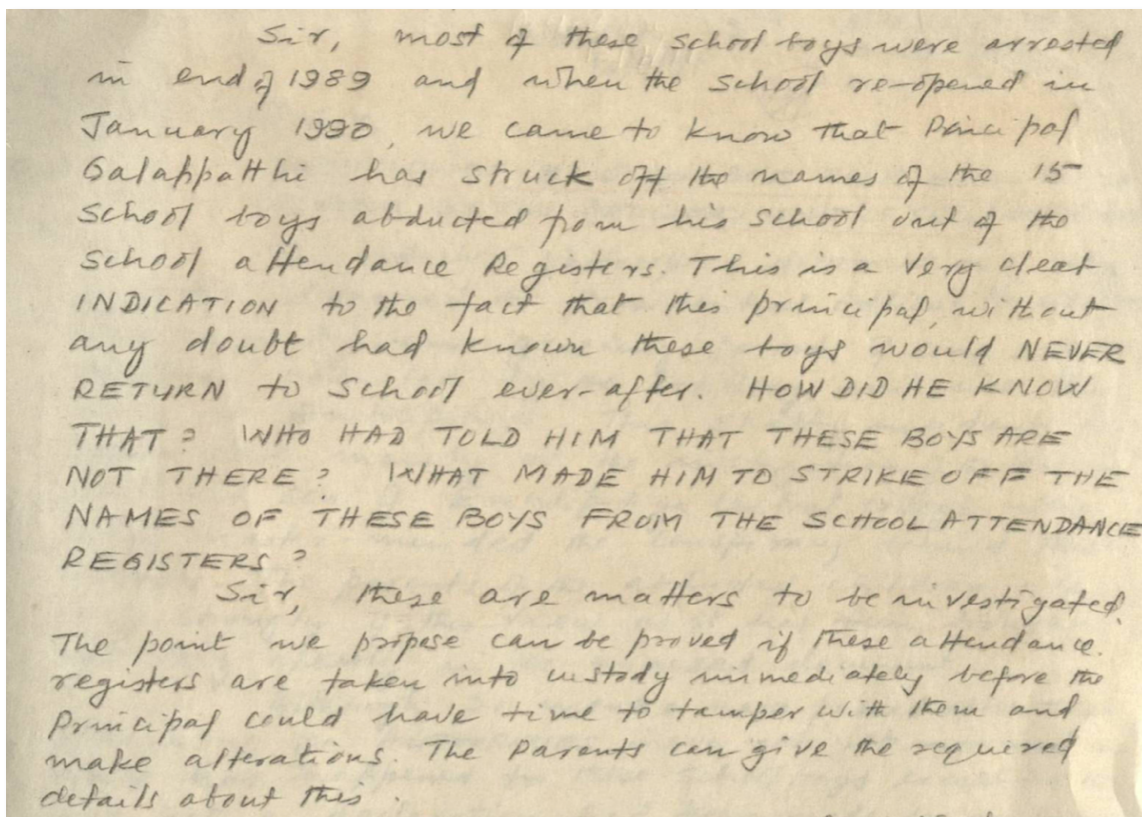 Sir, most of these school boys were arrested
in end of 1989 and when the school re-opened in
January 1990, we came to know that Principal
Galappatthi has struck off the names of the 15
school boys abducted from his school out of the
school attendance Registers. This is a very clear
INDICATION to the fact that this principal, without
any doubt had known these boys would NEVER
RETURN to school ever-after. HOW DID HE KNOW
THAT? WHO HAD TOLD HIM THAT THESE BOYS ARE
NOT THERE? WHAT MADE HIM TO STRIKE OFF THE
NAMES OF THESE BOYS FROM THE SCHOOL ATTENDANCE
REGISTERS?
Sir, these are matters to be investigated.
The point we propose can be proved if these attendance
registers are taken into custody immediately before the
Principal could have time to tamper with them and
make alterations. The Parents can give the required
details about this.